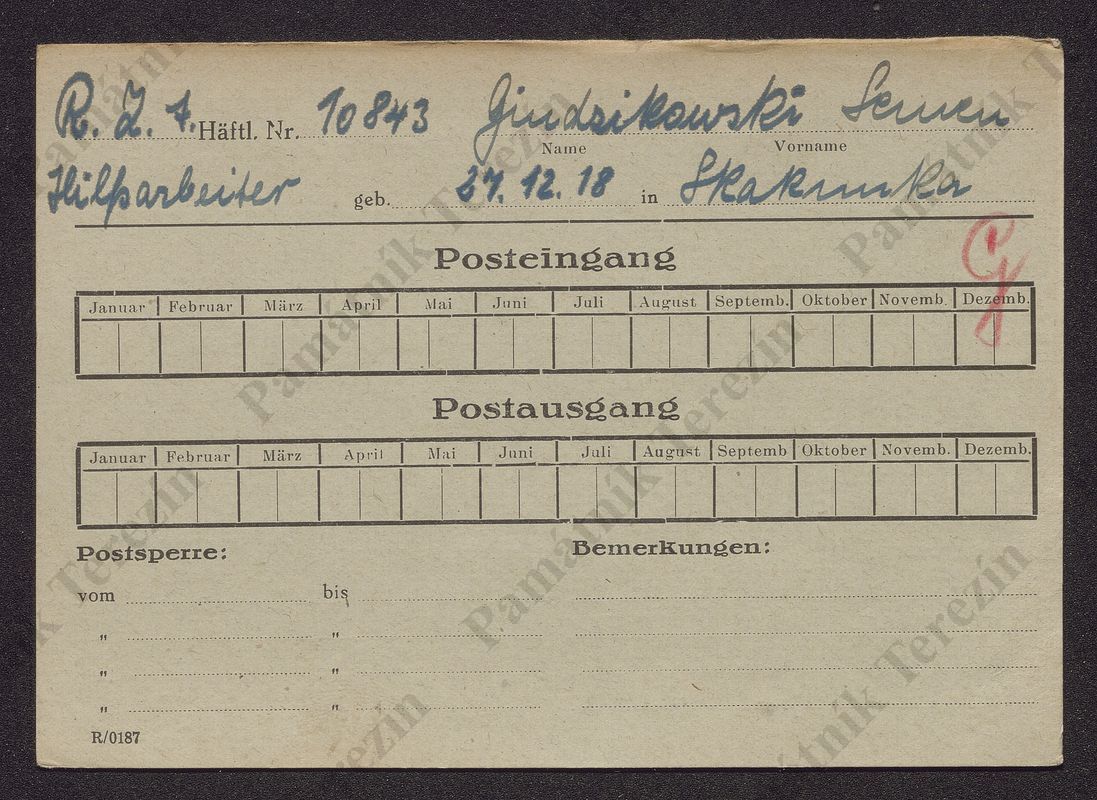 R. Z. A. Häftl. Nr. 10843 Gindzikowski Semen
Name Vorname
Hilfsarbeiter geb. 27.12.18 in
Posteingang
Januar Februar März April Mai Juni Juli August Septemb. Oktober Novemb. Dezemb.
Postausgang
Januar Februar März April Mai Juni Juli August Septemb Oktober Novemb. Dezemb.
Postsperre: Bemerkungen:
vom bis
" "
" "
" "
R/0187
Památník Terezín